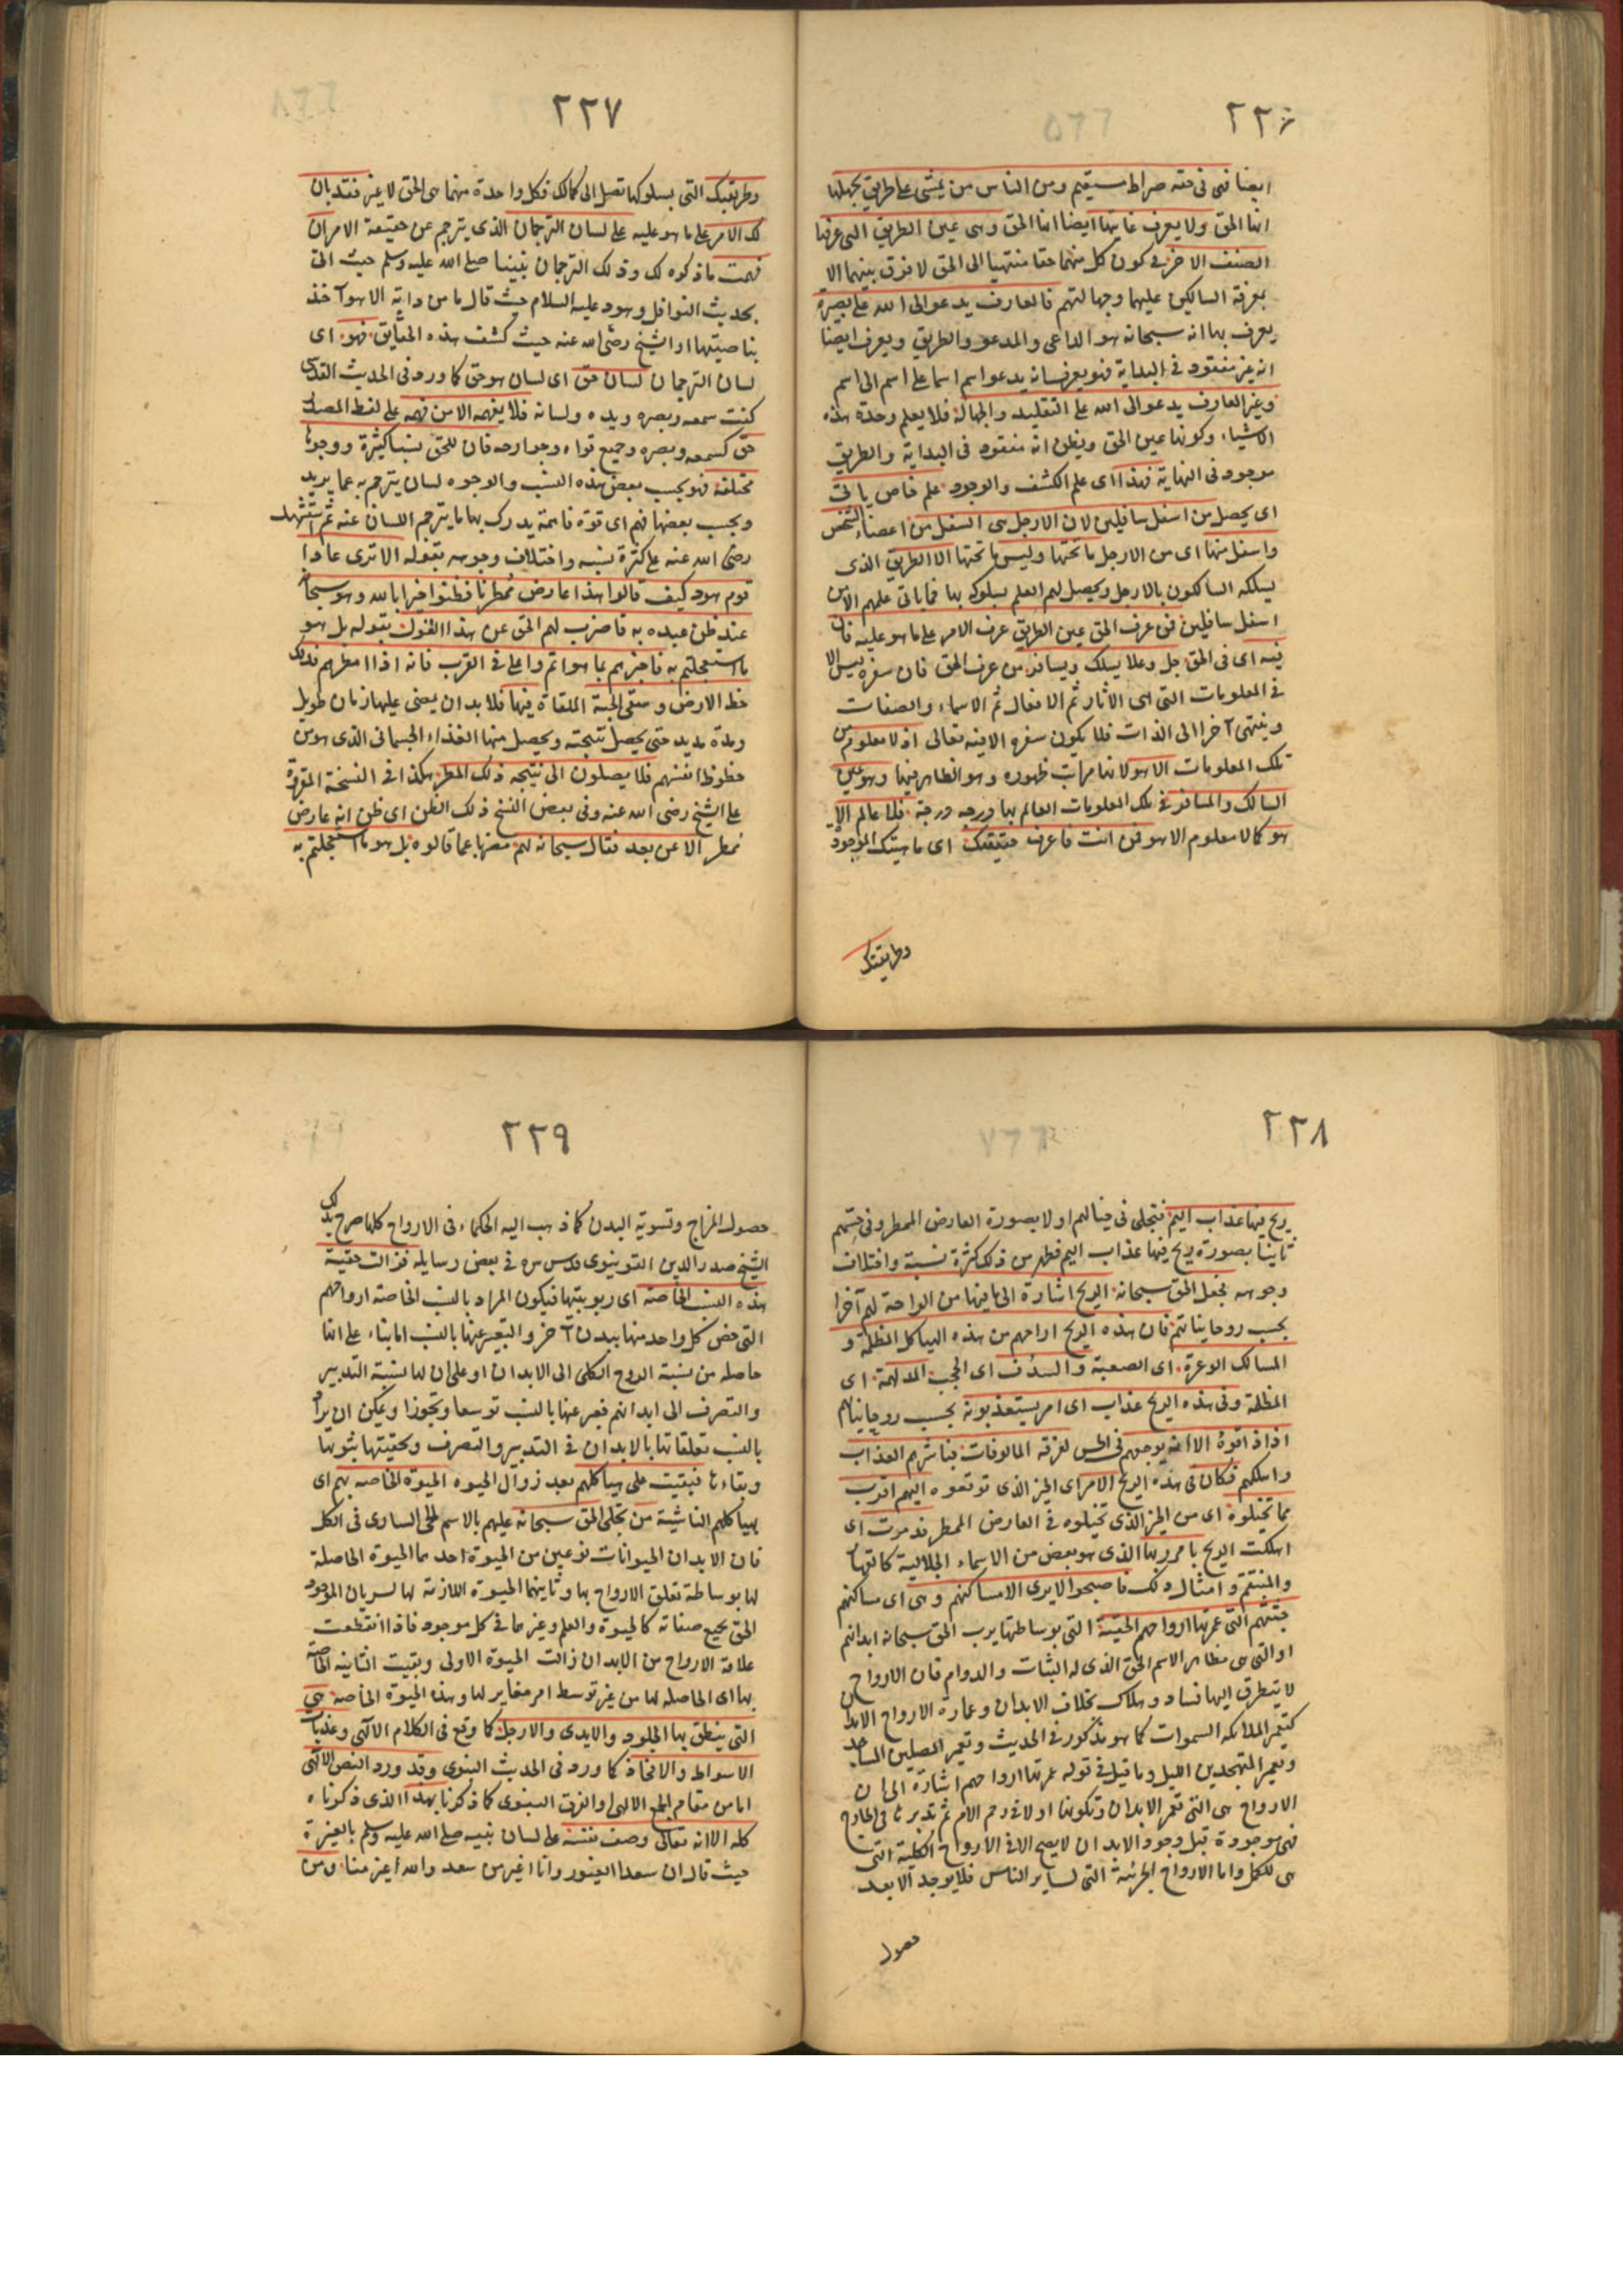 ٢٢٦
ايضا فهى فى حقه صراط مستقيم ومن الناس من يمشى على طريق يجهلها
انها الحق ولا يعرف غايتها ايضا انها الحق وهى عين الطريق التى عرفها
الصنف الاخر فى كون كل منهما حقا منتهيا الى الحق لا فرق بينهما الا
بمعرفة السالكين عليهما وجهالتهم فالعارف يدعو الى الله على بصيرة
يعرف بها انه سبحانه هو الداعى والمدعو والطريق ويعرف ايضا
انه غير مفقود فى البداية فهو يعرف انه يدعو اسم اسما على اسم الى اسم
وغير العارف يدعو الى الله على التقليد والجهالة فلا يعلم وحدة هذه
الاشياء وكونها عين الحق ويظن انه مفقود فى البداية والطريق
موجود فى النهاية فهذا اى علم الكشف والوجود علم خاص ياتى
اى يحصل من اسفل سافلين لان الارجل هى السفل من اعضاء الشخص
واسفل منها اى من الارجل ما تحتها وليس ما تحتها الا الطريق الذى
يسلكه السالكون بالارجل ويحصل لهم العلم بسلوكه بها فما ياتى علمهم الا من
اسفل سافلين فمن عرف الحق عين الطريق عرف الامر على ما هو عليه فان
فيه اى فى الحق جل وعلا يسلك ويسافر من عرف الحق فان سفره ليس الا
فى المعلومات التى هى الاثار ثم الافعال ثم الاسماء والصفات
وينتهى آخرا الى الذات فلا يكون سفره الا فيه تعالى اذ لا معلوم من
تلك المعلومات الا هو لانها مراتب ظهوره وهو الظاهر فيها وهو عين
السالك والمسافر فى تلك المعلومات العالم بها درجه درجة فلا عالم الا
هو كما لا معلوم الا هو فمن انت فاعرف حقيقتك اى ماهيتك الموجودة
وطريقتك
٢٢٧
وطريقتك التى بسلوكها تصل الى كمالك فكل واحدة منهما هى الحق لا غير فقد بان
لك الامر على ما هو عليه على لسان الترجمان الذى يترجم عن حقيقة الامر ان
فهمت ما ذكره لك وذلك الترجمان نبينا صلى الله عليه وسلم حيث اتى
بحديث النوافل وهود عليه السلام حيث قال ما من دابة الا هو آخذ
بناصيتها او الشيخ رضى الله عنه حيث كشف هذه الحقايق فهو اى
لسان الترجمان لسان حق اى لسان هو حق كما ورد فى الحديث القدسى
كنت سمعه وبصره ويده ولسانه فلا يفهمه الا من فهمه على لفظ المصدر
حق كسمعه وبصره وجميع قواه وجوارحه فان للحق نسبا كثيرة ووجوها
مختلفة فهو بحسب بعض هذه النسب والوجوه لسان يترجم به عما يريد
وبحسب بعضها فهم اى قوة فاهمة يدرك بها ما يترجم اللسان عنه ثم استشهد
رضى الله عنه على كثرة نسبه واختلاف وجوهه بقوله الا ترى عادا
قوم هود كيف قالوا هذا عارض ممطرنا فظنوا خيرا بالله وهو سبحانه
عند ظن عبده به فاضرب لهم الحق عن هذا القول بقوله بل هو
ما استعجلتم به فاخبرهم بما هو اتم واعلى فى القرب فانه اذا امطرهم فذلك
حظ الارض وسقى الحبة الملقاة فيها فلا بد ان يمضى عليها زمان طويل
ومدة مديد حتى يحصل نتيجته ويحصل منها الغذاء الجسمانى الذى هو من
حظوظ انفسهم فلا يصلون الى نتيجه ذلك المطر هكذا فى النسخة المقروة
على الشيخ رضى الله عنه وفى بعض النسخ ذلك الظن اى ظن انه عارض
ممطر الا عن بعد فقال سبحانه لهم مضربا عما قالوه بل هو ما استعجلتم به
٢٢٨
ريح فيها عذاب اليم فتجلى فى خيالهم اولا بصورة العارض الممطر وفى حسهم
ثانيا بصورة ريح فيها عذاب اليم فظهر من ذلك كثرة نسبة واختلاف
وجوهه فجعل الحق سبحانه الريح اشارة الى ما فيها من الراحة لهم آخرا
بحسب روحانياتهم فان هذه الريح اراحهم من هذه الهياكل المظلمة و
المسالك الوعرة اى الصعبة والسدف اى الحجب المدلهمة اى
المظلمة وفى هذه الريح عذاب اى امر يستعذبونه بحسب روحانياتهم
اذا ذاقوه الا انه يوجعهم فى الحس لفرقة المالوفات فباشرهم العذاب
واهلكهم فكان فى هذه الريح الامر اى الخير الذى توقعوه اليهم اقرب
مما تخيلوه اى من الخير الذى تخيلوه فى العارض الممطر فدمرت اى
اهلكت الريح بامر ربها الذى هو بعض من الاسماء الجلالية كالقهار
والمنتقم وامثال ذلك فاصبحوا لا يرى الا مساكنهم وهى اى مساكنهم
جثتهم التى عمرتها ارواحهم الحقية التى بوساطتها يرب الحق سبحانه ابدانهم
او التى هى مظاهر الاسم الحق الذى له الثبات والدوام فان الارواح
لا يتطرق اليها فساد وهلاك بخلاف الابدان وعمارة الارواح الابدان
كتعمير الملائكه السموات كما هو مذكور فى الحديث وتعمير المصلين المساجد
وتعمير المتهجدين الليل وما قيل فى قوله عمرتها ارواحهم اشارة الى ان
الارواح هى التى تعمر الابدان وتكونها اولا فى رحم الام ثم تدبرها فى الخارج
فهى موجودة قبل وجود الابدان لا يصح الا فى الارواح الكلية التى
هى للكمل واما الارواح الجزئية التى لساير الناس فلا يوجد الا بعد
حصول
٢٢٩
حصول المزاج وتسوية البدن كما ذهب اليه الحكماء فى الارواح كلها صرح بذلك
الشيخ صدر الدين القونيوى قدس سره فى بعض رسايله فزالت حقية
هذه النسب الخاصة اى ربوبيتها فيكون المراد بالنسب الخاصة ارواحهم
التى خص كل واحد منها ببدن آخر والتعبير عنها بالنسب اما بناء على انها
حاصله من نسبة الروح الكلى الى الابدان او على ان لها نسبة التدبير
والتصرف الى ابدانهم فعبر عنها بالنسب توسعا وتجوزا ويمكن ان يراد
بالنسب تعلقاتها بالابدان فى التدبير والتصرف وبحقيتها ثبوتها
وبقاءها فبقيت على هياكلهم بعد زوال الحيوه الحيوة الخاصه بهم اى
بهياكلهم الناشية من تجلى الحق سبحانه عليهم بالاسم الحى السارى فى الكل
فان الابدان الحيوانات نوعين من الحيوة احدهما الحيوة الحاصلة
لها بوساطة تعلق الارواح بها وثانيهما الحيوة اللازمة لها لسريان الموجود
الحق بجميع صفاته كالحيوة والعلم وغيرها فى كل موجود فاذا انقطعت
علاقة الارواح من الابدان زالت الحيوة الاولى وبقيت الثانيه الخاصة
بها اى الحاصله لها من غير توسط امر مغاير لها وهذه الحيوة الخاصه هى
التى ينطق بها الجلود والايدى والارجل كما وقع فى الكلام الالهى وعذبات
الاسواط والافخاذ كما ورد فى الحديث النبوى وقد ورد النص الالهى
اما من مقام الجمع الالهى او الفرق النبوى كما ذكرنا بهذا الذى ذكرناه
كله الا انه تعالى وصف نفسه على لسان نبيه صلى الله عليه وسلم بالغيرة
حيث قال ان سعدا لغيور وانا اغير من سعد والله اغير منا ومن